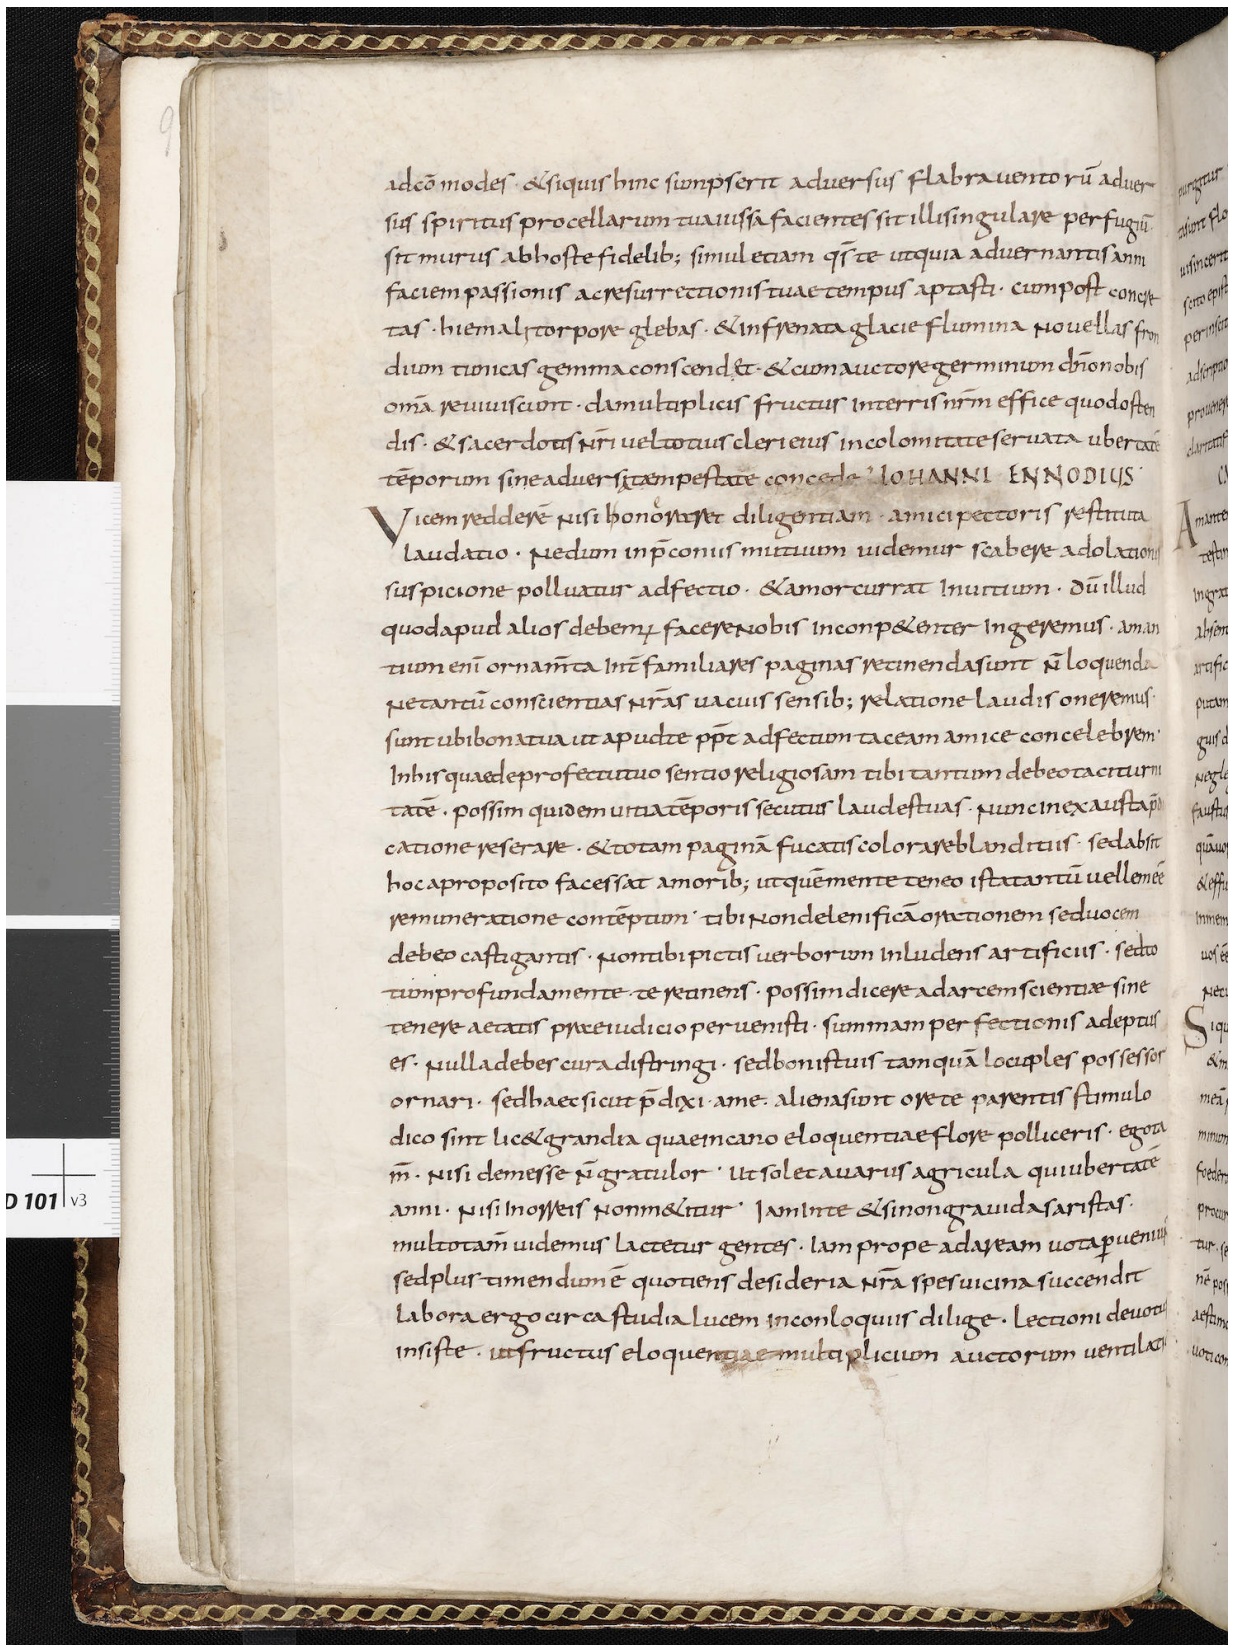 9
adcōmodes · &siquis hinc sumpserit adversus flabra ventorū adver
sus spiritus procellarum tua iussa facientes sit illi singulare perfugiū·
sit murus ab hoste fidelib; simul etiam qs̄ te ut quia advernantis anni
faciem passionis ac resurrectionis tuae tempus aptasti · cum post concre
tas · hiemali torpore glebas · & infrenata glacie flumina novellas fron
dium tunicas gemma conscend&· & cum auctore germinum dn̄o nobis
omā reviviscunt · da multiplicis fructus in terris nrm̄ effice quod osten
dis · & sacerdotis nr̄i vel totius cleri eius incolomitate servata ubertatē
tēporum sine adversi tempestate concede · IOHANNI ENNODIUS·
Vicem reddere nisi honor& diligentiam · amici pectoris restituta
laudatio · Nedum in p̄coniis mutuum videmur scabere adolationis
suspicione polluatur adfectio · & amor currat in vitium · Dū illud
quod apud alios debemus facere nobis inconp&enter ingeremus · aman
tium eni ornam̄ta int̄ familiares paginas retinenda sunt n̄ loquenda
Ne tantū conscientias nrās vacuis sensib; relatione laudis oneremus·
sunt ubi bona tua ut apud te pp̄t adfectum taceam amice concelebrem·
In his quae de profectu tuo sentio religiosam tibi tantum debeo taciturni
tatē · possim quidem vitia tēporis secutus laudes tuas · Nunc inexausta p̄di
catione reserare · & totam paginā fucatis colorare blanditiis · sed absit
hoc aproposito facessat amorib; ut quē mente teneo ista tantū vellem eē
remuneratione contēptum· tibi non delenificā orationem sed vocem
debeo castigantis · Non tibi pictis verborum inludens artificiis · sed to
tum profunda mente · te retinens · possim dicere ad arcem scientiae sine
tenere aetatis praeiudicio pervenisti · summam perfectionis adeptus
es · Nulla debes cura distringi · sed bonis tuis tamquā locuples possessor
ornari · sed haec sicut p̄dixi · a me · aliena sunt ore te parentis stimulo
dico sint lic& grandia quae in cano eloquentiae flore polliceris · ego ta
m̄ · Nisi de messe n̄ gratulor · Ut solet avarus agricula qui ubertatē
anni · Nisi in orreis non m&itur· Iam in te & si non gravidas aristas ·
multo tam̄ videmus lactetur gentes · Iam prope ad aream vota pervenius
sed plus timendum ē quotiens desideria nr̄a spes vicina succendit
labora ergo circa studia lucem in conloquiis dilige · lectioni devotus
insiste · ut fructus eloquentiae multiplicum auctorum ventilatis
D 101 v3